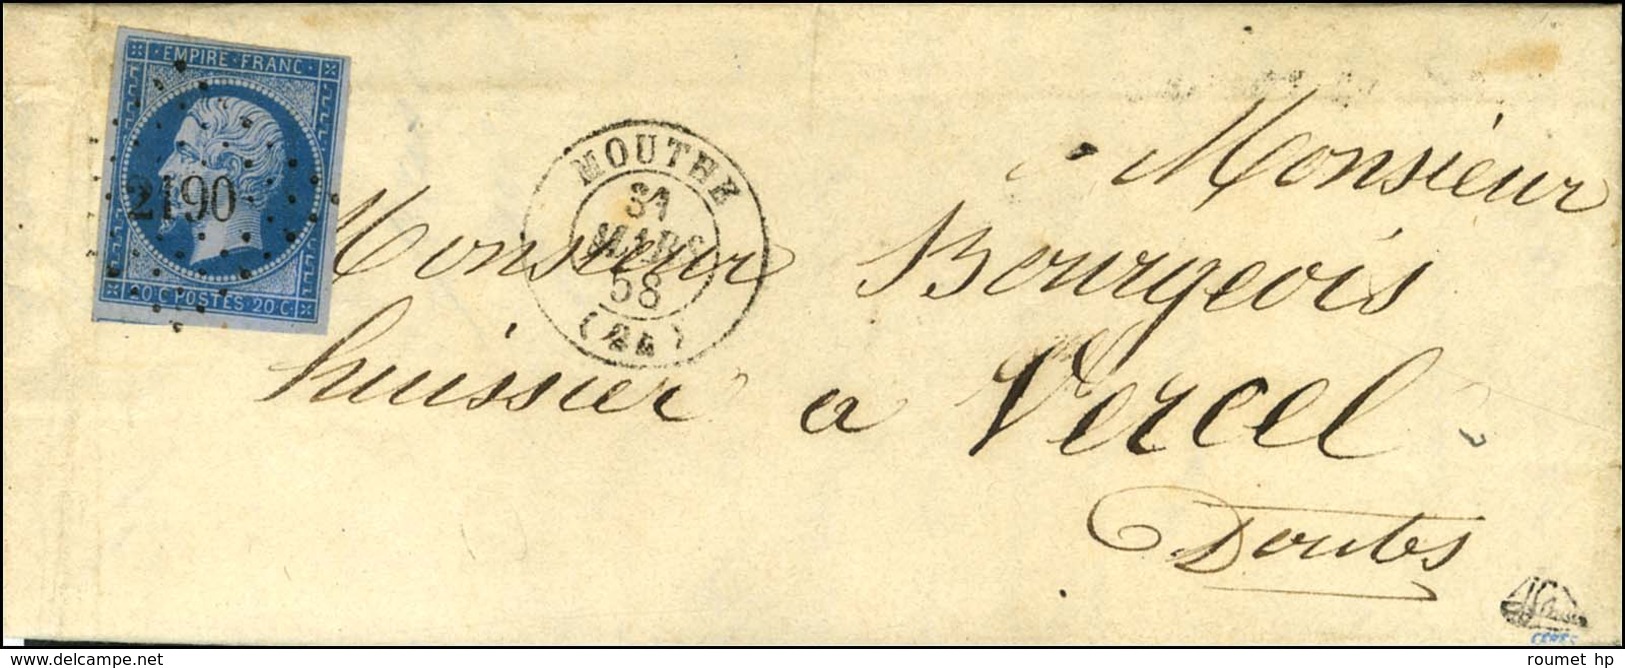 EMPIRE FRANC
2190
20 C POSTES 20 C
MOUTHE
31
MARS
58
(24)
Monsieur
Monsieur Bourgeois
huissier a Vercel
Doubs
CERES
roumet hp